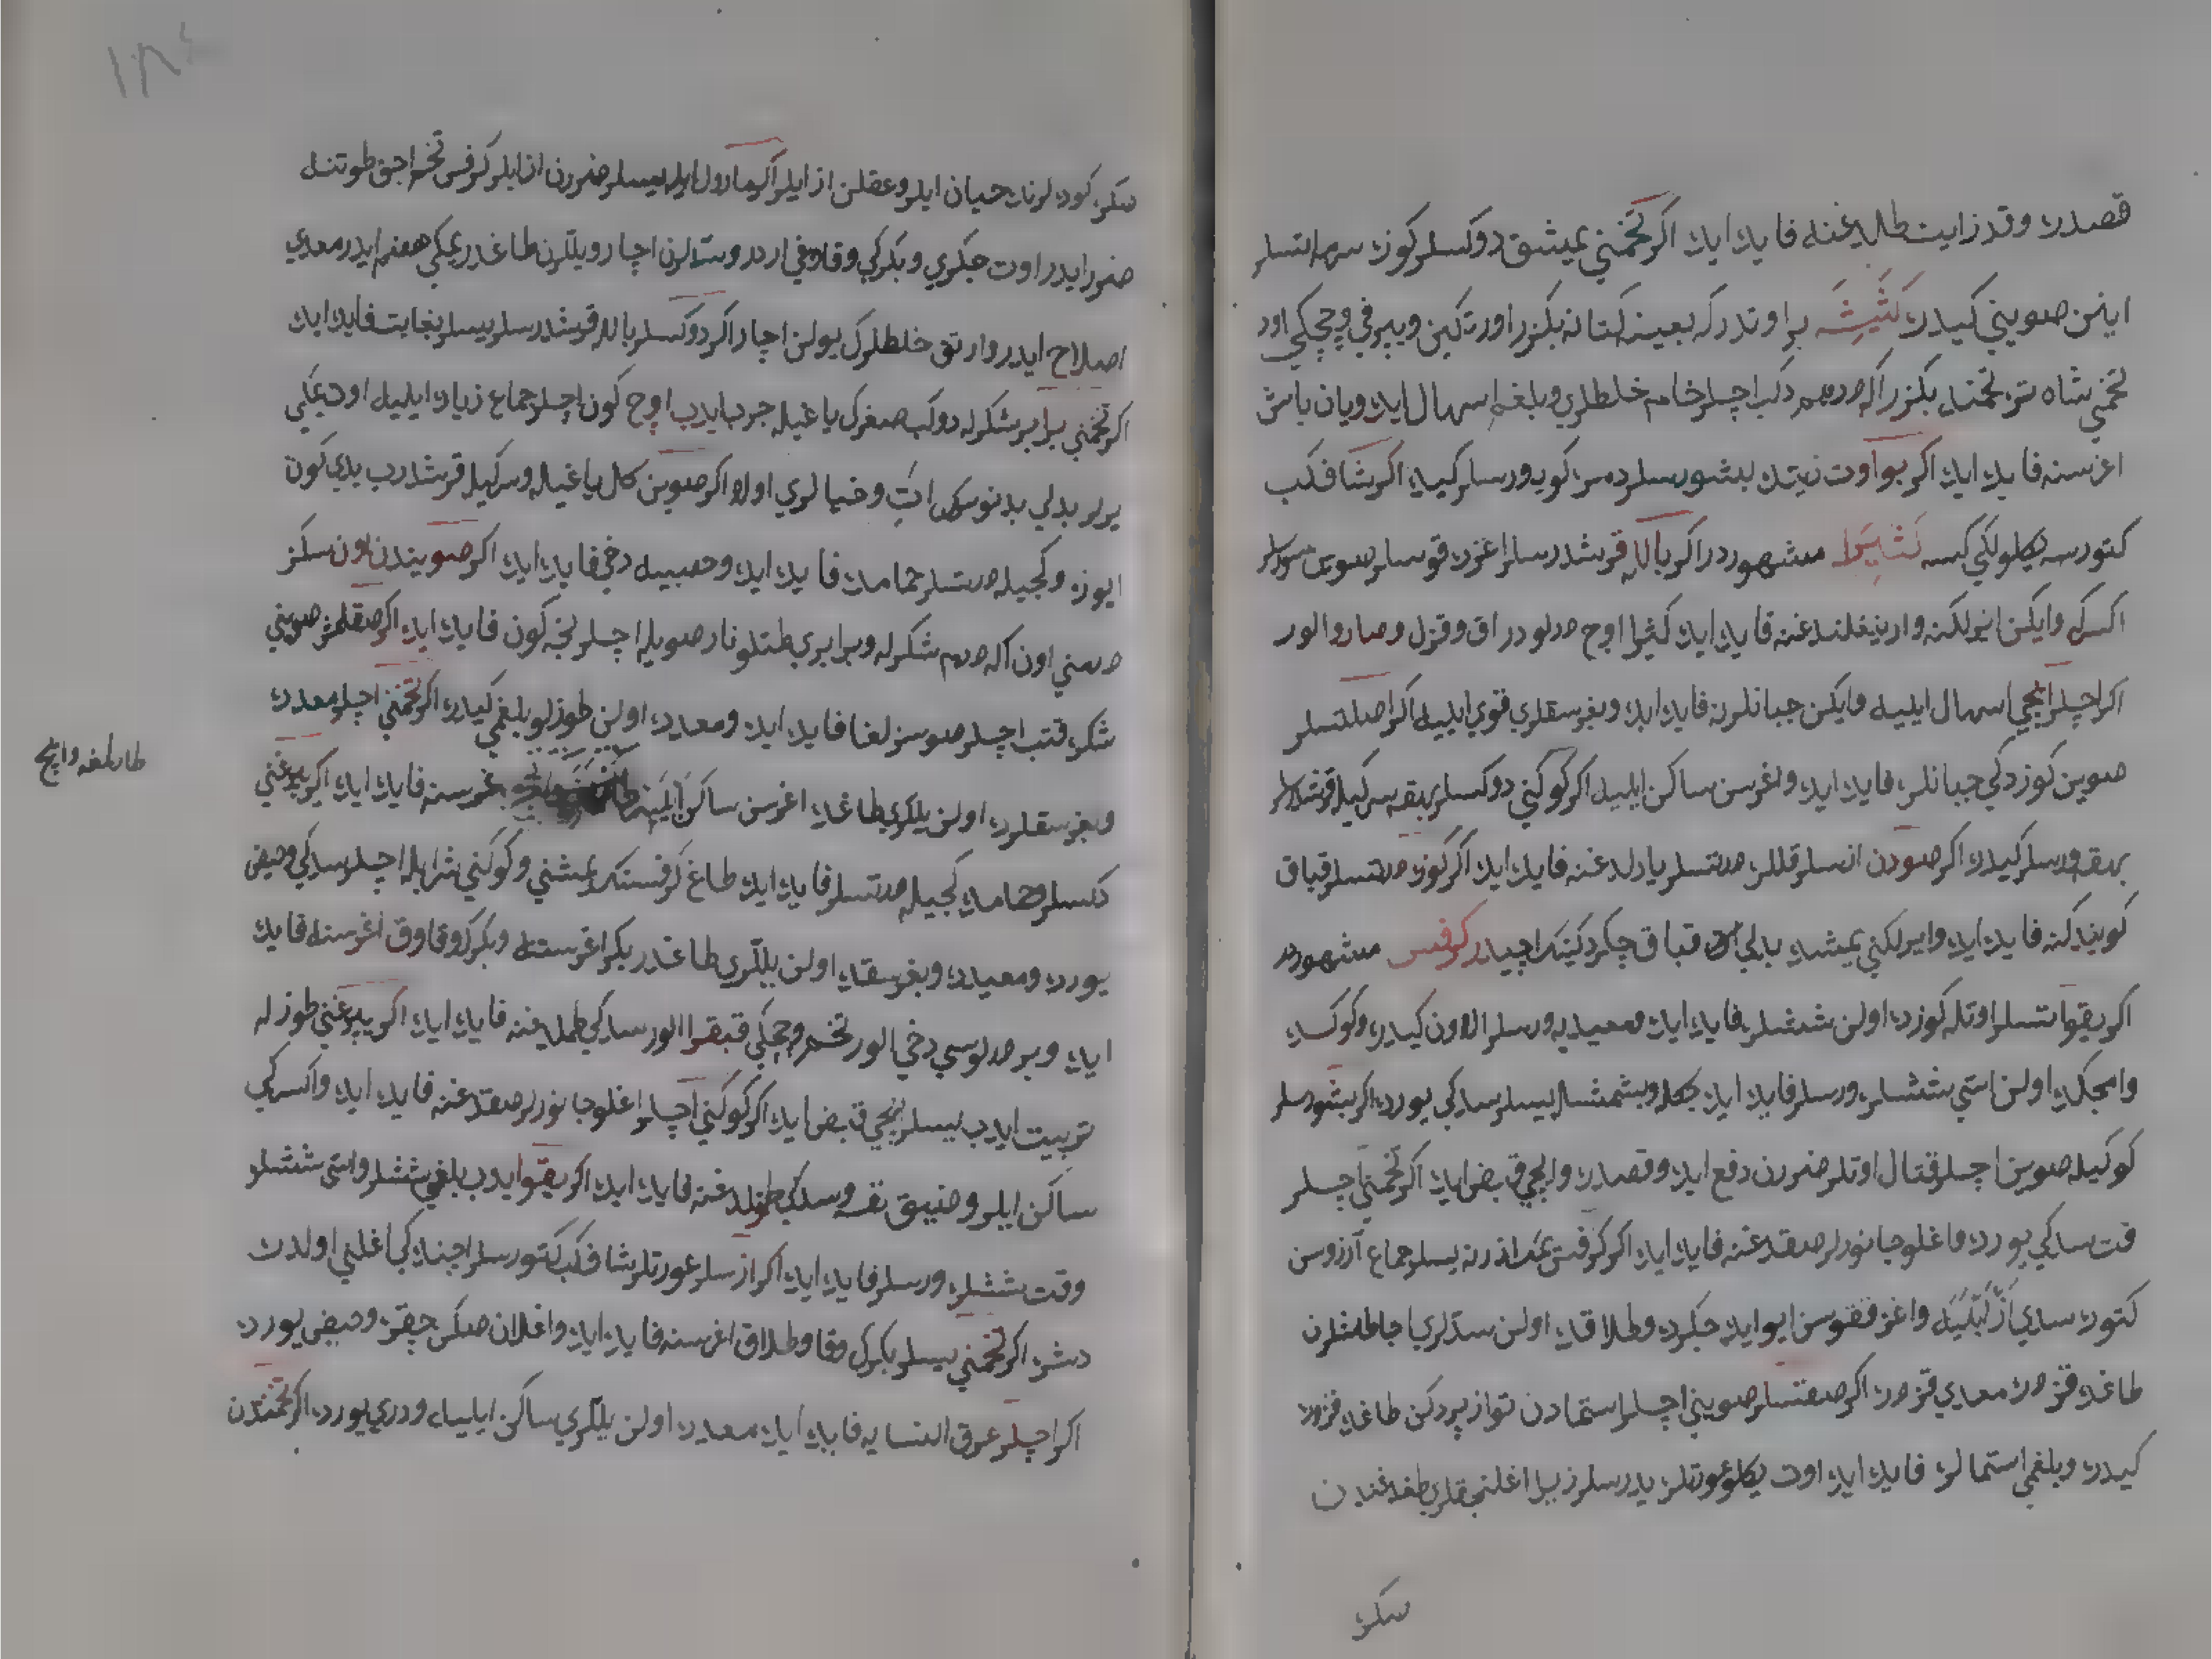 قصدر وقد زايت طالديغنه فايده ايده اكر تخمني يمشق دوكسلر كوزه سرمه اتسلر
اينن صويني كيدر كثيثه بر اوتدر كه بعينه كتانه بكزر اورته كبن ويپرغي وچچكي اود
تخمي شاه تره تخمنه بكزر اكه درهم دكب اچسلر خام خلطلري وبلغم اسهال ايده ويان باش
اغرسنه فايده ايده اكر بو اوت زيتله بشورسلر دمره كويه ورسلر كيده اكر شاف كب
كتورسه يكلو لكي كسه كثيرا مشهوردر اكر بالله قرشدرسلر اغزده قوسلر صوين سورسلر
اكسكه وايكن انولكنه واريغلندغنه فايده ايده كثيرا اوچ درلودر اق وقزل وصارو الور
اكر اچسلر ايچي اسهال ايليه وايكن جبانلرنه فايده ايده وبغرسقلري قوي ايليه اكر اصلتسلر
صوين كوزدكي جبانلره فايده ايده واغرسن ساكن ايليه اكر كوكني دوكسلر بهقه سركيله قرشدرسلر
بهقه ورسلر كيده اكر صودن انسلر قللره درتسلر يادلدغنه فايده ايده اكر كوزه درتسلر قباق
كويندكنه فايده ايده وايرلكني يمشده بدلي اق قباق چكردكينك اچيدر كرفس مشهوردر
اكر يقو اتسلر اوتله كوزده اولن ششلره فايده ايده ومعيديه ورسلر الاون كيدره وكوكسده
وامجكده اولن اسّي ششلره ورسلر فايده ايده جكلو وبشمشله يسلر سدكي يورده اكر بشورسلر
كوكيله صوين اچسلر قتال اوتلر ضررن دفع ايده وقصدره وايچي قبض ايده اكر تخمني اچسلر
قت سدكي يورده واغلو جانورلر صقدغنه فايده ايده اكر كرفسي يمك ازرنه يسلر جماع آرزوسن
كتوره سدي ازلبليه واغز ققوسن ايو ايده جكرده وطلاقده اولن سدّلري اجا طمغنلرن
طاغده قزدره معدي قزدره اكر صفتسلر صويني اچسلر استمادن توازير دكن طاغده قزدره
كيدره وبلغمي استمالره فايده ايده اوت يكلو عورتلره يدرسلر زيرا اغلنجقلري طغدغندن
سكره
١٨٤
سكره كوده لرنك جبان ايلر وعقلن از ايلر اكر مارول ايله يسلر ضررن از ايلر كرفس تخم اجق طوتنله
ضرر ايدر اوت جكري وبكركي وقاوغي ارد در وسّدلرن اچار ويللرن طاغدر يمكي هضم ايدر معدي
اصلاح ايدر وارتق خلطلرك يولن اچار اكر دوكسلر باله قرشدرسلر يسلر بغايت فايده ايده
اكر تخمني برابر شكرله دوكب صغرك ياغيله جرب ايدب اوچ كون اچسلر جماع زياده ايليه اوت يمكي
يرلر بدلي بدنوسركي ات وخيالري اوله اكر صوين كل ياغيله وسركيله قرشدرب يدي كون
ايوزه وكجيله درتسلر حمامده فايده ايده وحصبيه دخي فايده ايده اكر صويندن اون سكز
درهمني اون اكه درهم شكرله وبرابري طتلو نار صويله اچسلر نجه كون فايده ايده اكر صقلمش صويني
شكره قتب اچسلر صوسزلغا فايده ايده ومعدده اولن طوزلو بلغمي كيدره اكر تخمني اچسلر معدده
وبغرسقلرده اولن يللري طاغده اغرسن ساكن ايليه بغرسنه فايده ايده اكر يپرغني
طارلغنه وايچ
دكسلر وحمامده كجيله درتسلر فايده ايده طاغ كرفسنك يمشني وكوكني شرابله اچسلر سدكي وحيضي
يورده ومعيده وبغرسقده اولن يللري طاغدر بكر اغرستنه وبكرك وقاوق اغرسنه فايده
ايده وبر درلوسي دخي الور تخم وچچكي قبقرا الور سدكي طملديغنه فايده ايده اكر يپرغني طوزله
تربيت ايدب يسلر ايچي قبض ايده اكر كوكني اچسلر اغلو جانورلر صقدغنه فايده ايده واكسركي
ساكن ايلر وضيق نفسه وسدك طوتلدغنه فايده ايده اكر يقو ايدب بلغمي ششلر واسّي ششلر
وقت ششلره ورسلر فايده ايده اكر ازسلر عورتلر شاف كب كتورسلر اجنده كي اغلني اولدره
دشره اكر تخمني يسلر بكرك وقاو وطلاق اغرسنه فايده ايده واغلان صكن چقره وحيضي يورده
اكر اچسلر عرق النسايه فايده ايده معدده اولن يللري ساكن ايليه ودري يورده اكر تخمندن